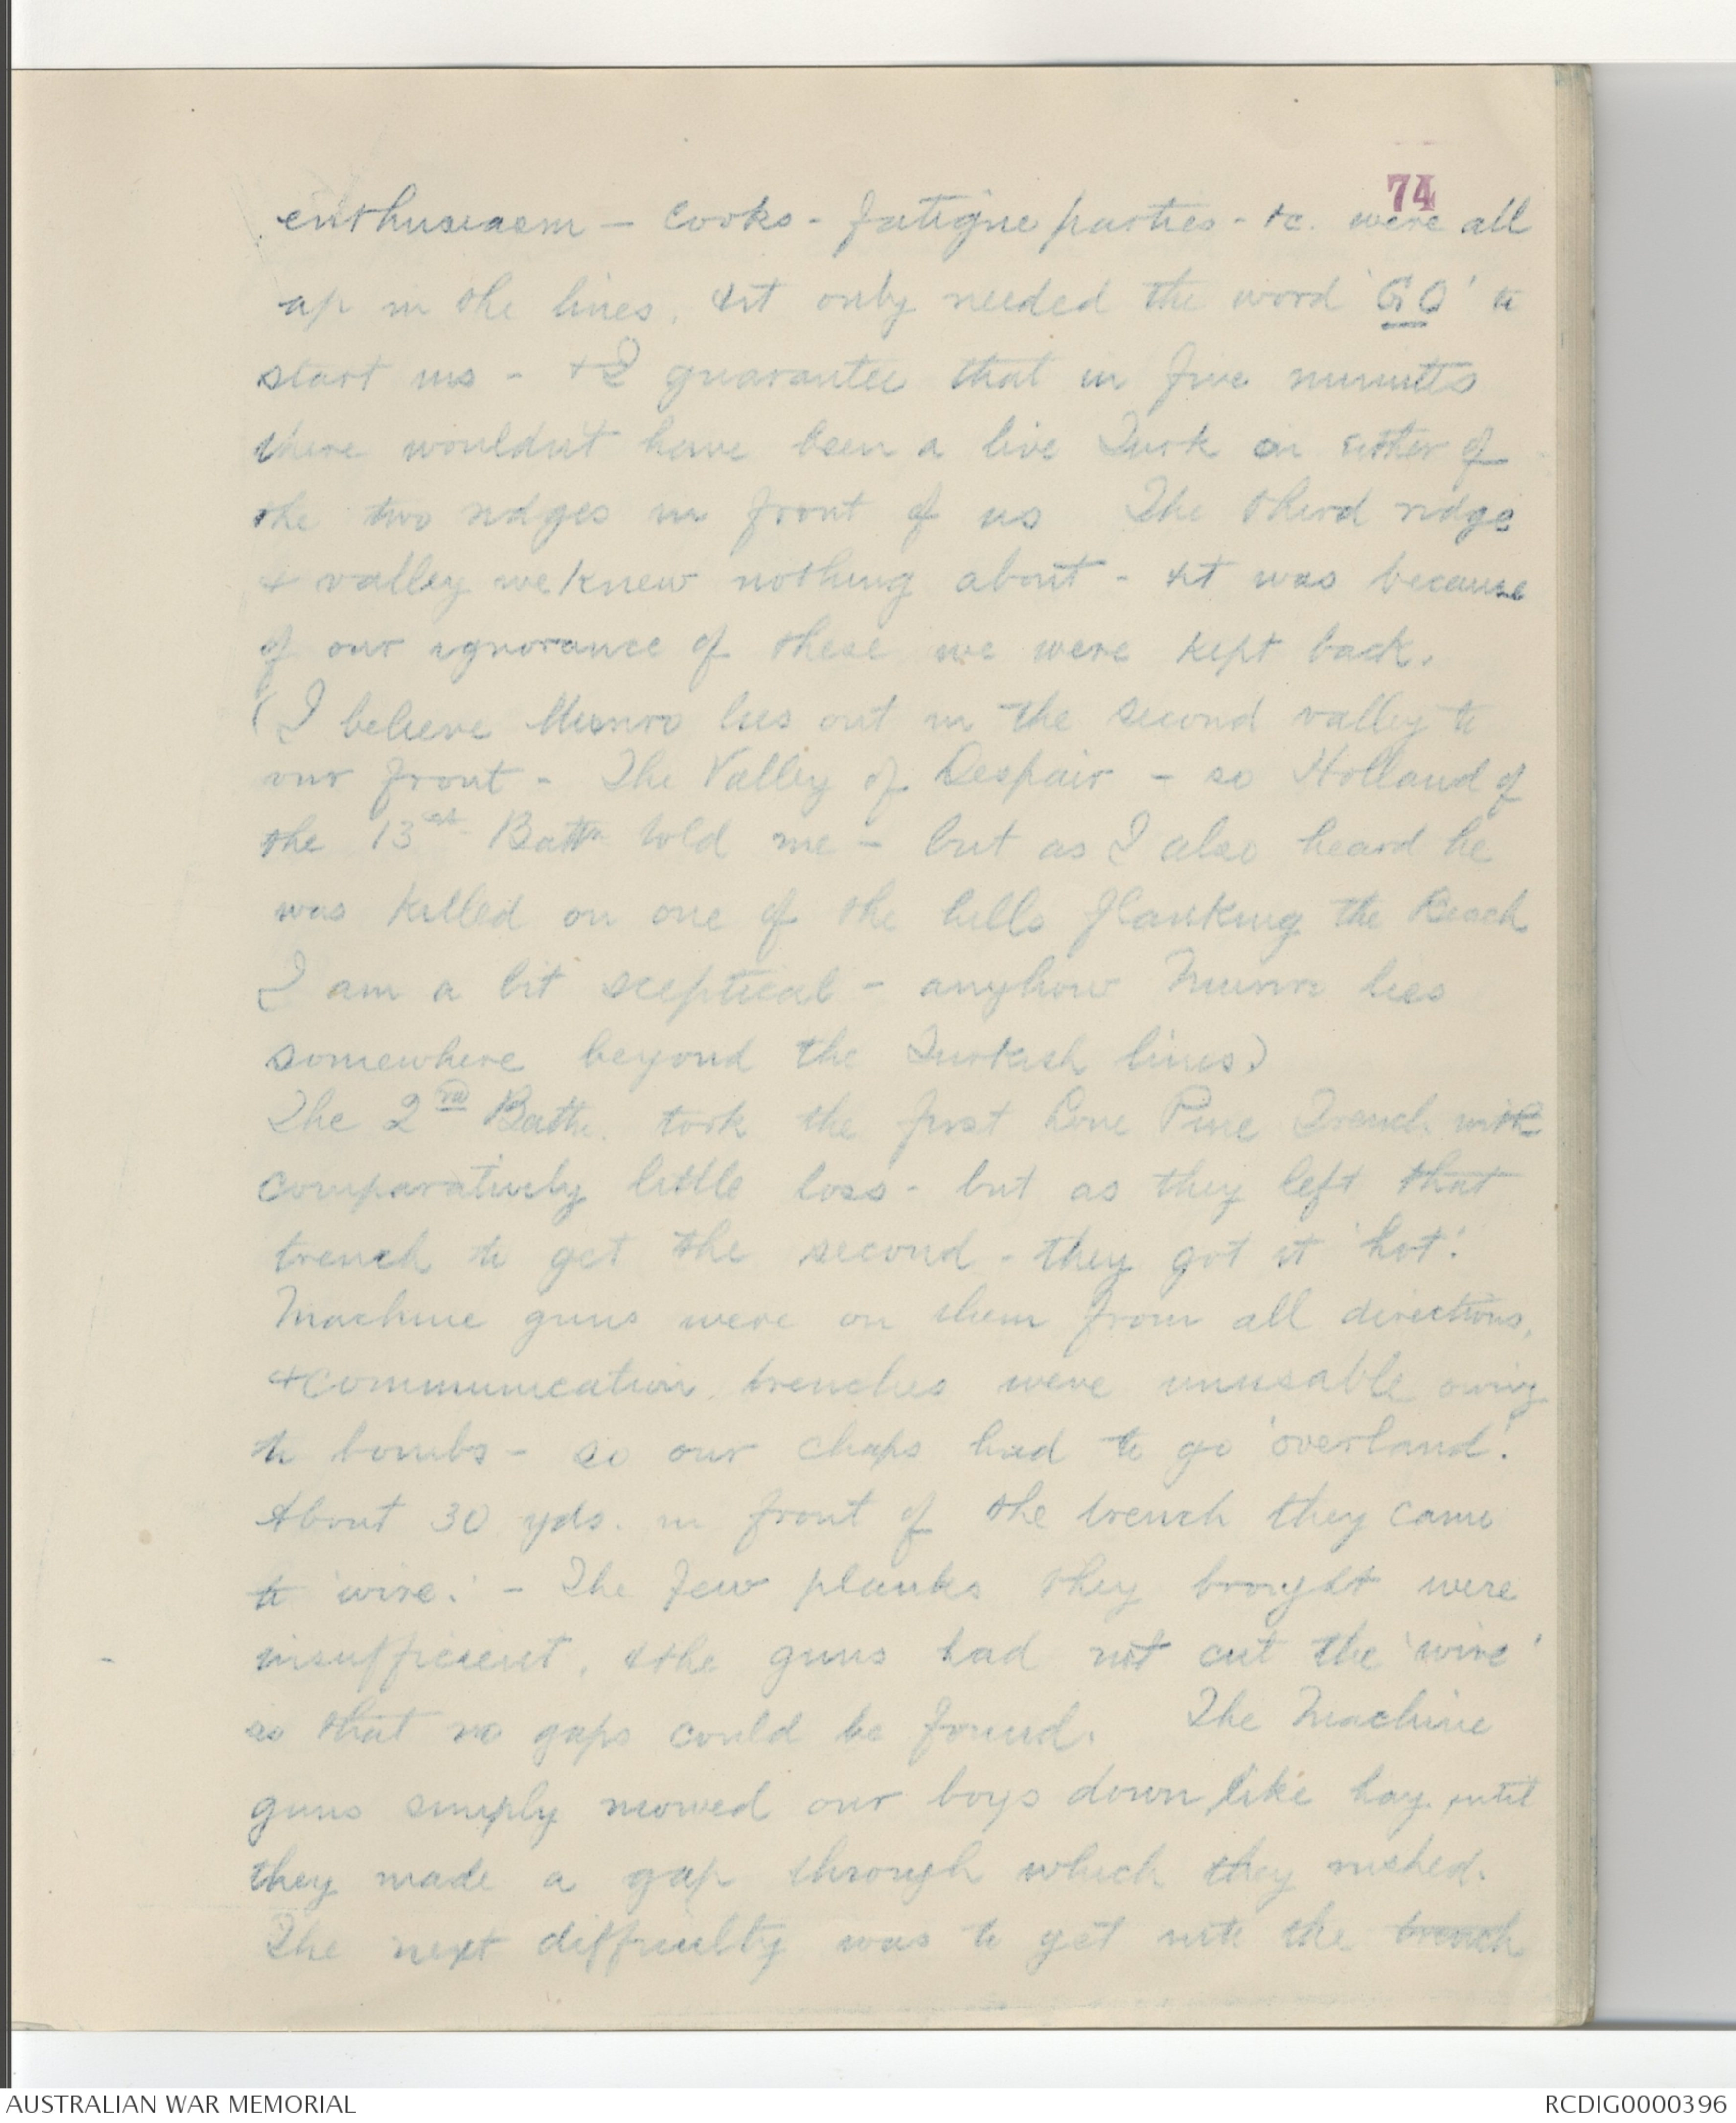 74
enthusiasm — cooks - fatigue parties - &c. were all
up in the lines, &it only needed the word 'GO' to
start us - & I guarantee that in five minutes
there wouldnt have been a live Turk on either of
the two ridges in front of us The third ridge
& valley we knew nothing about - &it was because
of our ignorance of these we were kept back.
(I believe Munro lies out in the second valley to
our front - The Valley of Despair - so Holland of
the 13th Battn told me - but as I also heard he
was killed on one of the hills flanking the Beach
I am a bit sceptical - anyhow Munro lies
somewhere beyond the Turkish lines)
The 2nd Battn. took the first Lone Pine Trench with
comparatively little loss - but as they left that
trench to get the second - they got it 'hot'.
Machine guns were on them from all directions,
& communication trenches were unusable owing
to bombs - so our chaps had to go 'overland'.
About 30 yds. in front of the trench they came
to 'wire'. - The few planks they brought were
insufficient, &the guns had not cut the 'wire'
so that no gaps could be found. The Machine
guns simply mowed our boys down like hay until
they made a gap through which they rushed.
The next difficulty was to get into the trench
AUSTRALIAN WAR MEMORIAL
RCDIG0000396